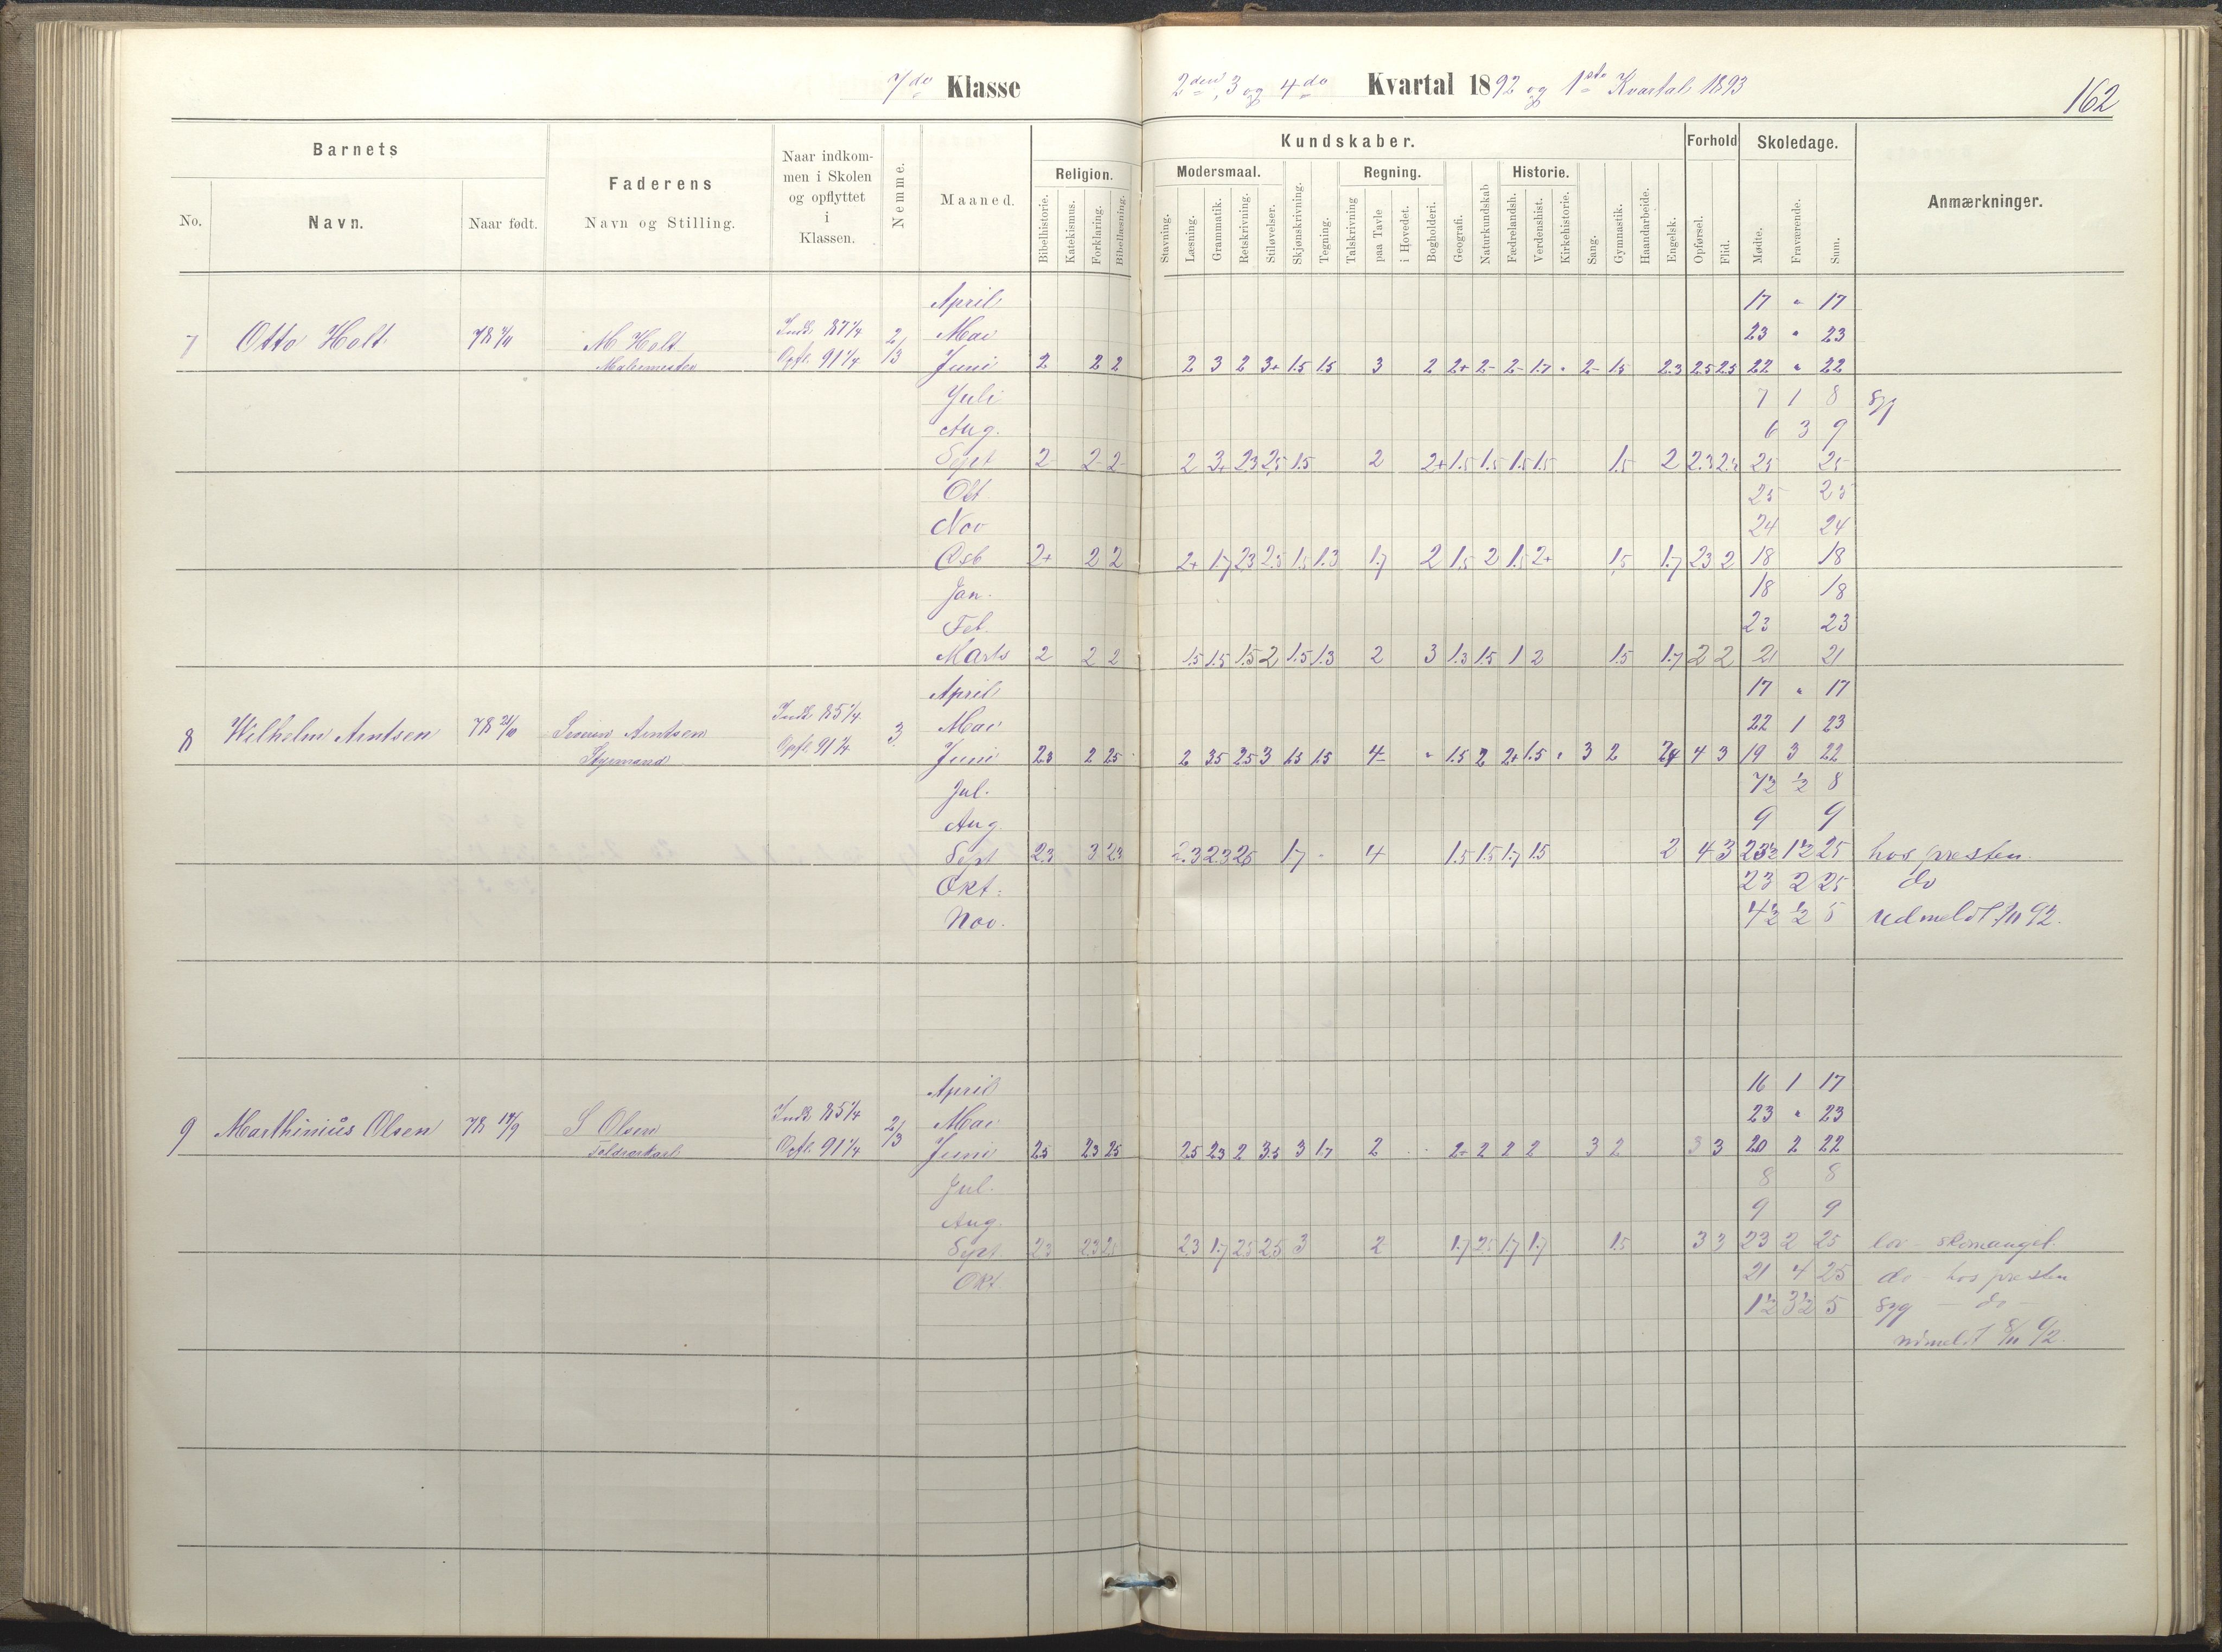 7de Klasse
2den, 3 og 4de Kvartal 1892 og 1ste Kvartal 1893
162
Barnets
Faderens
Naar indkommen i Skolen og opflyttet i Klassen.
Nemme.
Maaned.
Kundskaber.
Forhold
Skoledage.
Anmærkninger.
No.
Navn.
Naar født.
Navn og Stilling.
Religion.
Modersmaal.
Regning.
Historie.
Bibelhistorie.
Katekismus.
Forklaring.
Bibellæsning.
Stavning.
Læsning.
Grammatik.
Retskrivning.
Stiløvelser.
Skjønskrivning.
Tegning.
Talskrivning
paa Tavle
i Hovedet.
Bogholderi.
Geografi.
Naturkundskab
Fædrelandsh.
Verdenshist.
Kirkehistorie.
Sang.
Gymnastik.
Haandarbeide.
Engelsk.
Opførsel.
Flid.
Mødte.
Fraværende.
Sum.
April 17 " 17
7 Otto Holt M Holt Indk 87 1/4 2/3 Mai 23 " 23
Malermester Opfl. 91 1/4 Juni 2 2 2 2 3 2 3+ 1.5 1.5 3 2 2+ 2- 2- 1.7 " 2- 1.5 2.3 2.5 2.5 22 " 22
Juli 7 1 8 syg
Aug. 6 3 9
Sept 2- 2- 2- 2 3+ 2.3 2.5 1.5 2 2+ 1.5 1.5 1.5 1.5 1.5 2 2.3 25 25
Okt 25 25
Nov 24 24
Deb 2+ 2 2 2+ 1.7 2.3 2.5 1.5 1.3 1.7 2 1.5 2 1.5 2+ 1.5 1.7 2.3 2 18 18
Jan. 18 18
Feb. 23 23
Marts 2 2 2 1.5 1.5 1.5 2 1.5 1.3 2 3 1.3 1.5 1 2 1.5 1.7 2 2 21 21
April 17 " 17
8 Wilhelm Arntsen Arntsen Indk 85 1/4 3 Mai 22 1 23
Styrmand Opfl 91 1/4 Juni 2.3 2 2.5 2 3.5 2.5 3 1.5 1.5 4- " 1.5 2 2+ 1.5 " 3 2 4 3 19 3 22
Jul. 7 1/2 1/2 8
Aug. 9 9
Sept 2.3 3 2.3 2.3 2.3 2.5 1.7 4 1.5 1.5 1.7 1.5 2 4 3 23 1/2 1 1/2 25 hos presten.
Okt: 23 2 25 do
Nov. 4 1/2 1/2 5 udmeldt 92.
April 16 1 17
9 Marthinius Olsen 78 S Olsen Indk 85 1/4 2/3 Mai 23 " 23
Opfl. 91 1/4 Juni 2.5 2.3 2.5 2.5 2.3 2 3.5 3 1.7 2 2- 2 2 2 3 2 3 3 20 2 22
Jul. 8 8
Aug. 9 9
Sept. 2.3 2.3 2.3 1.7 2.5 2.5 3 2 1.7 2.5 1.7 1.7 1.5 3 3 23 2 25 lov - skomangel.
Okt. 21 4 25 do - hos presten
1 1/2 3 1/2 5 syg - do -
8/11 92.